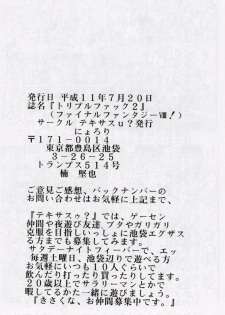 発行日 平成11年7月20日
誌名『トリプルファック2』
(ファイナルファンタジーⅧ!)
サークル テキサスu?発行
にょろり
〒171-0014
東京都豊島区池袋
3-26-25
トランプス514号
楠 堅也
ご意見ご感想、バックナンバーの
お問い合わせはお気軽に上記まで、
『テキサスゥ?』では、ゲーセン
仲間や夜遊び友達 ブタやガリガリ
克服を目指しいっしょに池袋エグザス
る方までも募集してみます。
サタデーナイトフィーバーで、エッ
毎週土曜日、池袋辺りで遊べる方
お気軽にいつも10人ぐらいで
飲んだり打ったり買ったりしてます。
20歳以上でサラリーマンとかで
暇してるかた一緒に遊びましょう。
『きさくな、お仲間募集中です。』